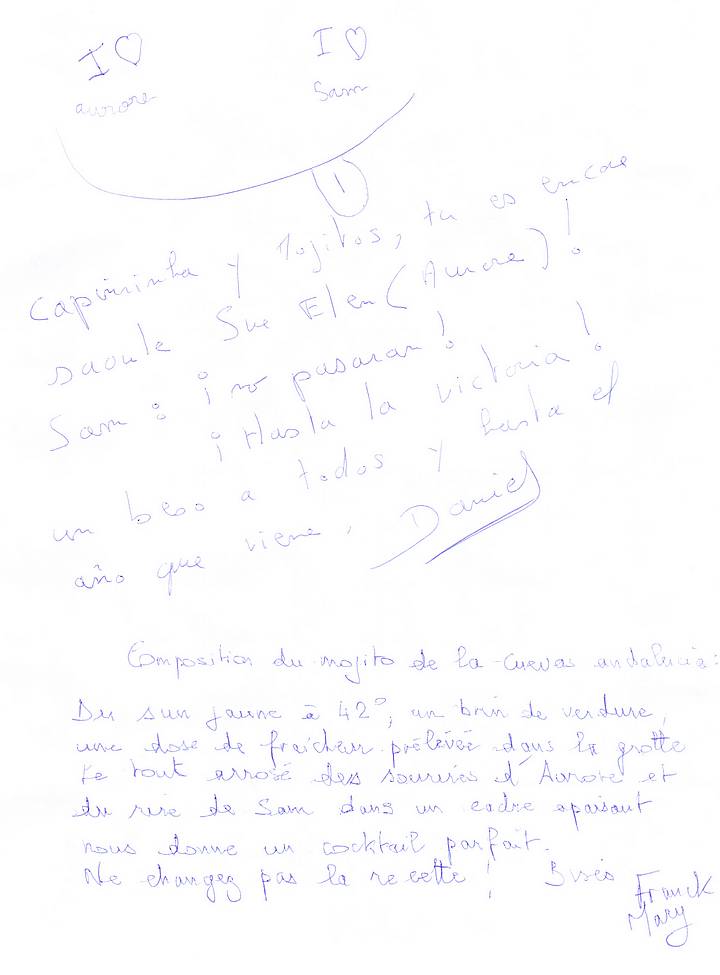 I ♡ I ♡
aurore Sam
1
Capirinha y Mojitos, tu es encore
saoule Sue Elen (Aurore) !
Sam : ¡ no pasaran !
¡ Hasta la victoria !
un beso a todos y hasta el
año que viene, Daniel
Composition du mojito de la cuevas andalucia :
Du sun jaune à 42°, un brin de verdure,
une dose de fraîcheur prélévée dans la grotte
Le tout arrosé des sourires d'Aurore et
du rire de Sam dans un cadre apaisant
nous donne un cocktail parfait.
Ne changez pas la recette ! Bises Franck
Mary